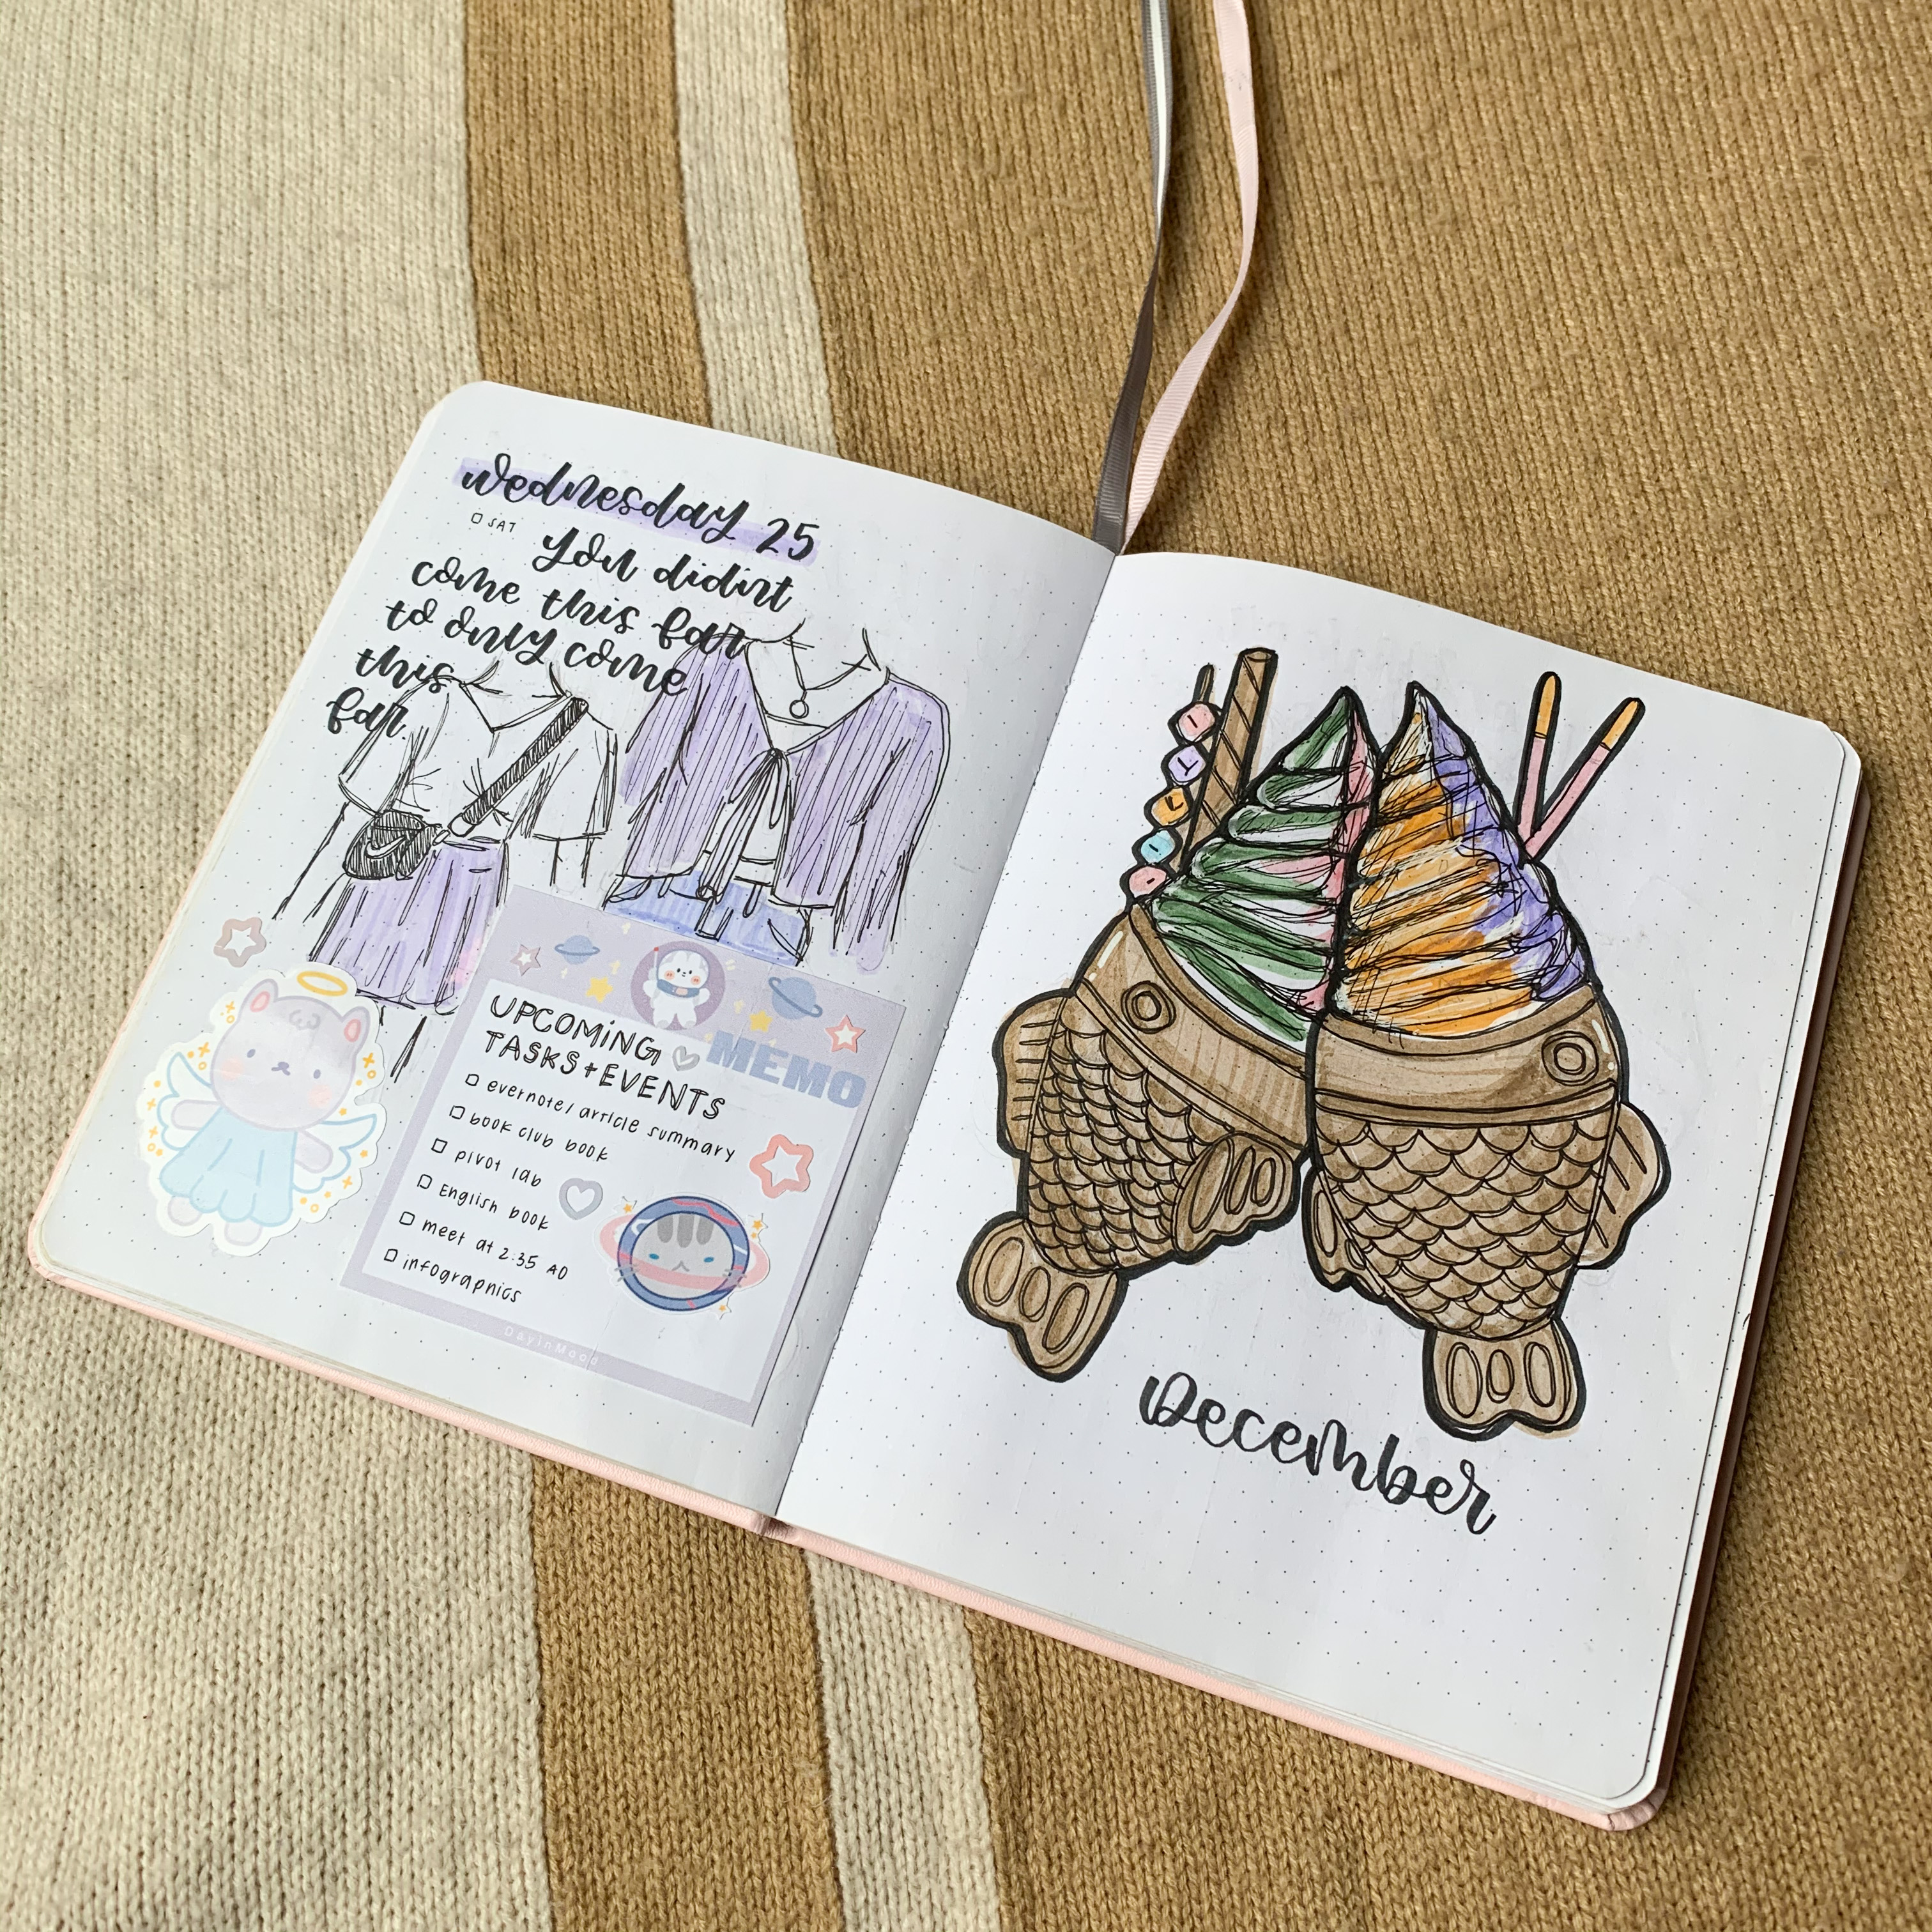 wednesday 25
SAT
you didn't
come this far
to only come
this
far
MEMO
UPCOMING
TASKS + EVENTS
evernote / article summary
book club book
pivot lab
English book
meet at 2:35 AO
infographics
DayinMood
December